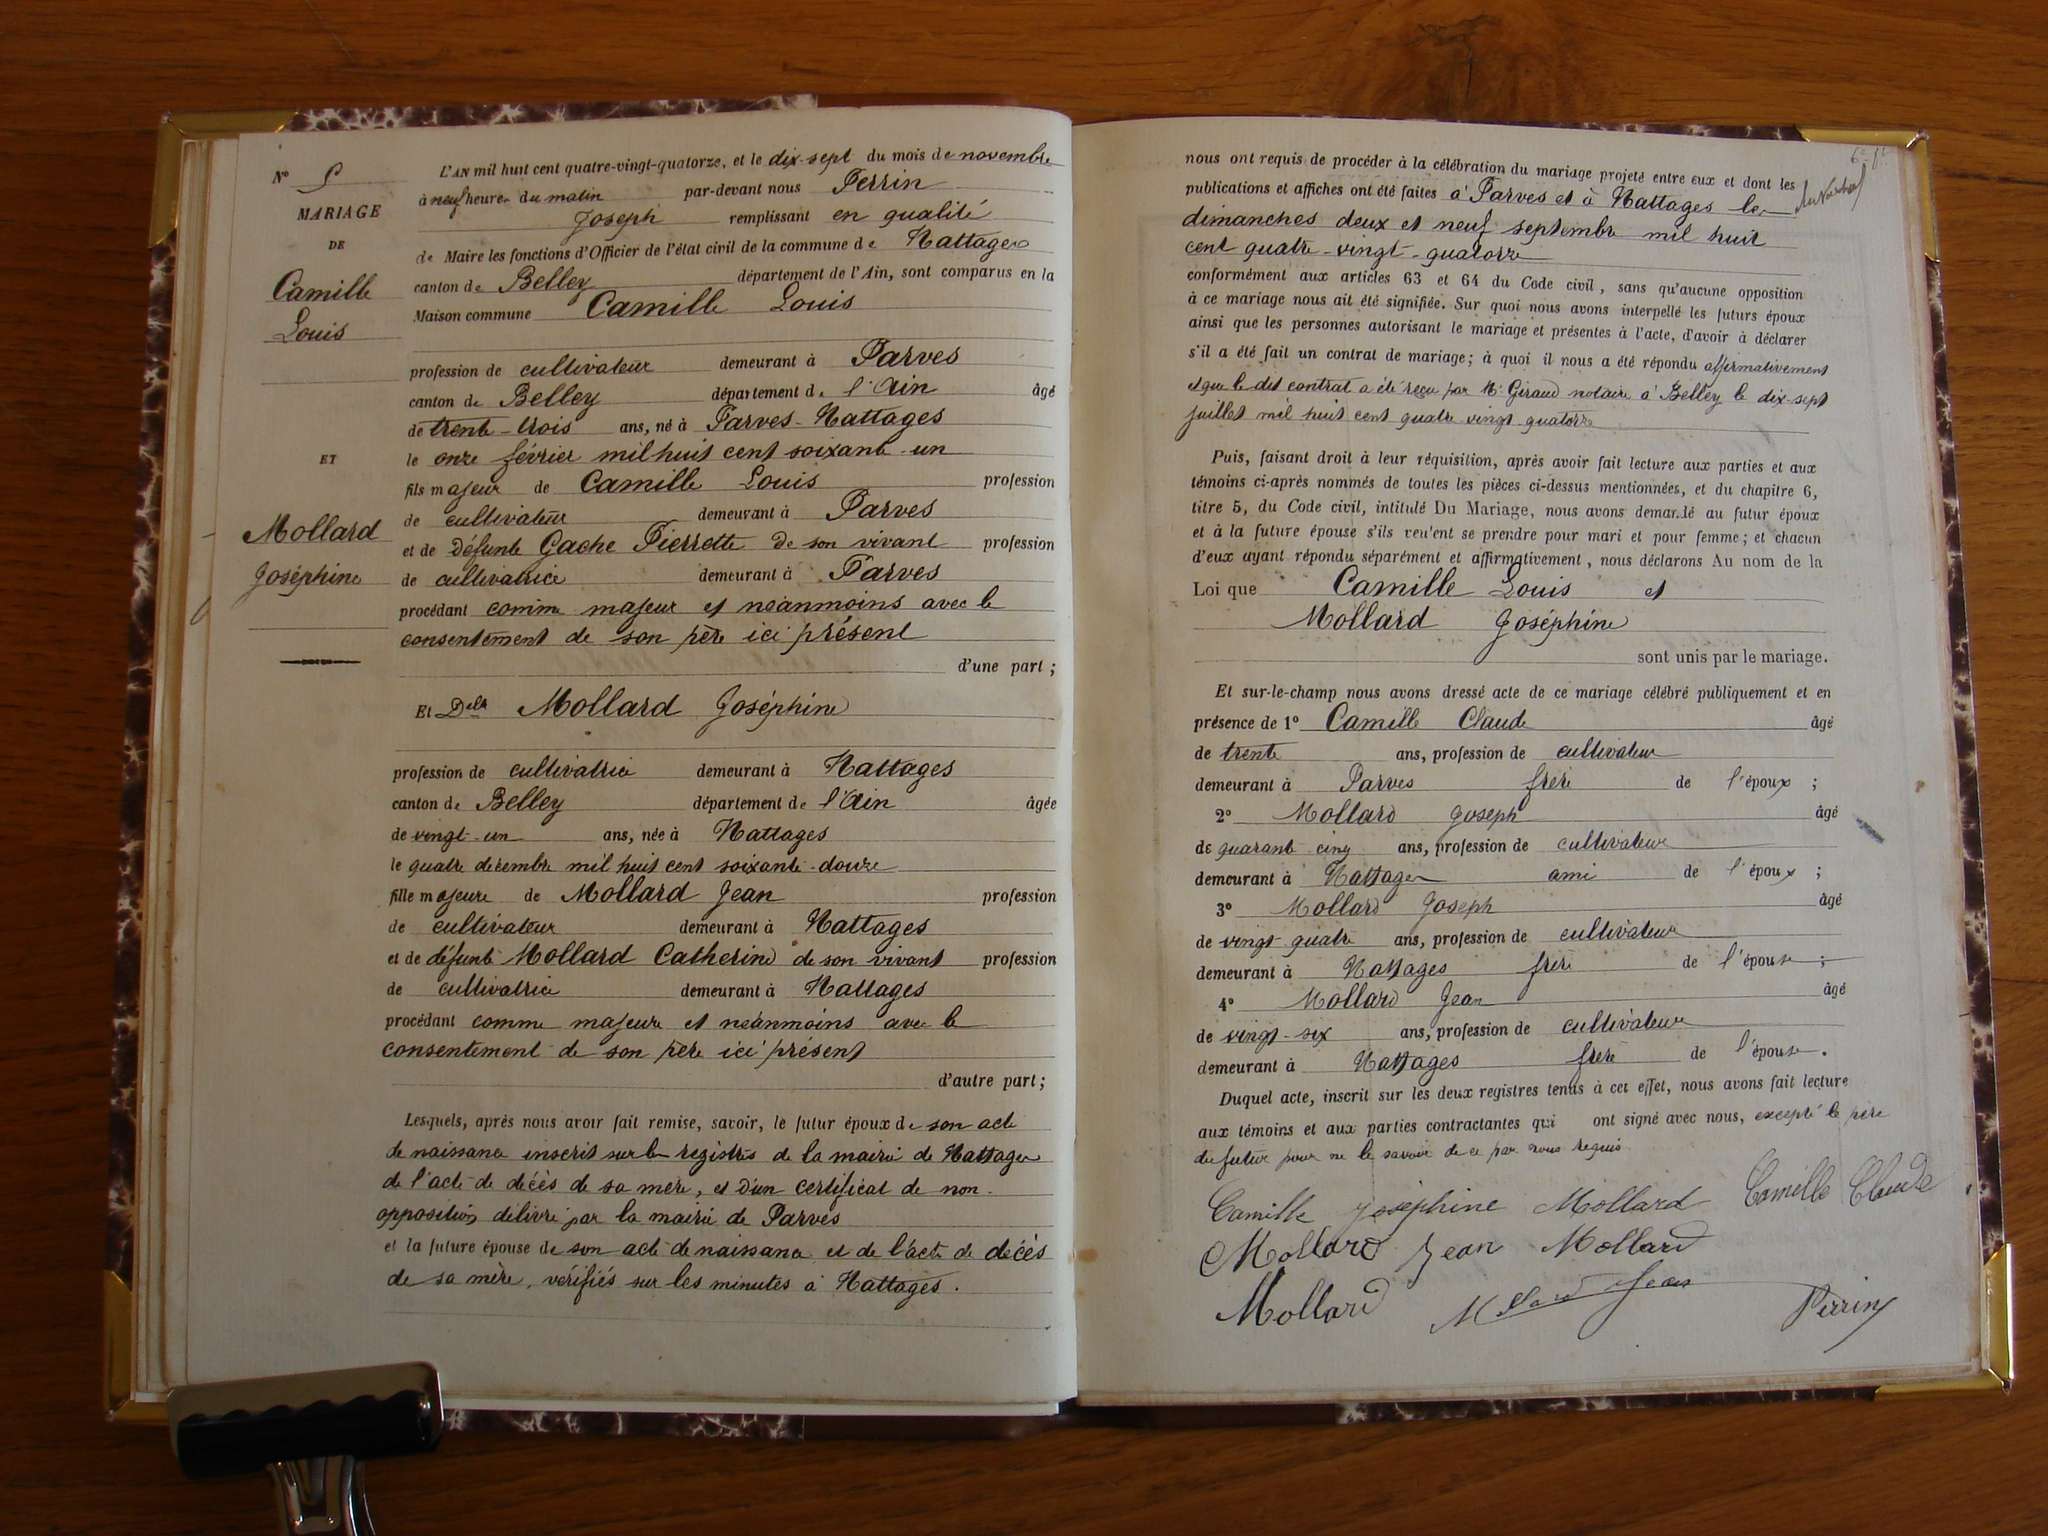 N° 5
MARIAGE
DE
Camille
Louis
ET
Mollard
Joséphine
L'AN mil huit cent quatre-vingt-quatorze, et le dix-sept du mois de novembre
à neuf heures du matin par-devant nous Perrin
Joseph remplissant en qualité
de Maire les fonctions d'Officier de l'état civil de la commune de Nattages
canton de Belley département de l'Ain, sont comparus en la
Maison commune Camille Louis
profession de cultivateur demeurant à Parves
canton de Belley département de l'Ain âgé
de trente-trois ans, né à Parves-Nattages
le onze février mil huit cent soixante-un
fils majeur de Camille Louis profession
de cultivateur demeurant à Parves
et de défunte Gache Pierrette de son vivant profession
de cultivatrice demeurant à Parves
procédant comme majeur et néanmoins avec le
consentement de son père ici présent
d'une part ;
Et Delle Mollard Joséphine
profession de cultivatrice demeurant à Nattages
canton de Belley département de l'Ain âgée
de vingt-un ans, née à Nattages
le quatre décembre mil huit cent soixante-douze
fille majeure de Mollard Jean profession
de cultivateur demeurant à Nattages
et de défunte Mollard Catherine de son vivant profession
de cultivatrice demeurant à Nattages
procédant comme majeure et néanmoins avec le
consentement de son père ici présent
d'autre part ;
Lesquels, après nous avoir fait remise, savoir, le futur époux de son acte
de naissance inscrit sur les registres de la mairie de Nattages
de l'acte de décès de sa mère, et d'un certificat de non-
opposition délivré par la mairie de Parves
et la future épouse de son acte de naissance et de l'acte de décès
de sa mère, vérifiés sur les minutes à Nattages.
nous ont requis de procéder à la célébration du mariage projeté entre eux et dont les
publications et affiches ont été faites à Parves et à Nattages les
dimanches deux et neuf septembre mil huit
cent quatre-vingt-quatorze
conformément aux articles 63 et 64 du Code civil, sans qu'aucune opposition
à ce mariage nous ait été signifiée. Sur quoi nous avons interpellé les futurs époux
ainsi que les personnes autorisant le mariage et présentes à l'acte, d'avoir à déclarer
s'il a été fait un contrat de mariage ; à quoi il nous a été répondu affirmativement
et que le dit contrat a été reçu par Me Giraud notaire à Belley le dix-sept
juillet mil huit cent quatre vingt quatorze
Puis, faisant droit à leur réquisition, après avoir fait lecture aux parties et aux
témoins ci-après nommés de toutes les pièces ci-dessus mentionnées, et du chapitre 6,
titre 5, du Code civil, intitulé Du Mariage, nous avons demandé au futur époux
et à la future épouse s'ils veulent se prendre pour mari et pour femme ; et chacun
d'eux ayant répondu séparément et affirmativement, nous déclarons Au nom de la
Loi que Camille Louis et
Mollard Joséphine
sont unis par le mariage.
Et sur-le-champ nous avons dressé acte de ce mariage célébré publiquement et en
présence de 1° Camille Claude âgé
de trente ans, profession de cultivateur
demeurant à Parves frère de l'époux ;
2° Mollard Joseph âgé
de quarante cinq ans, profession de cultivateur
demeurant à Nattages ami de l'époux ;
3° Mollard Joseph âgé
de vingt quatre ans, profession de cultivateur
demeurant à Nattages frère de l'épouse ;
4° Mollard Jean âgé
de vingt-six ans, profession de cultivateur
demeurant à Nattages frère de l'épouse.
Duquel acte, inscrit sur les deux registres tenus à cet effet, nous avons fait lecture
aux témoins et aux parties contractantes qui ont signé avec nous, excepté le père
du futur pour ne le savoir de ce par nous requis
Camille Joséphine Mollard Camille Claude
Mollard Jean Mollard
Mollard Mollard Jean Perrin